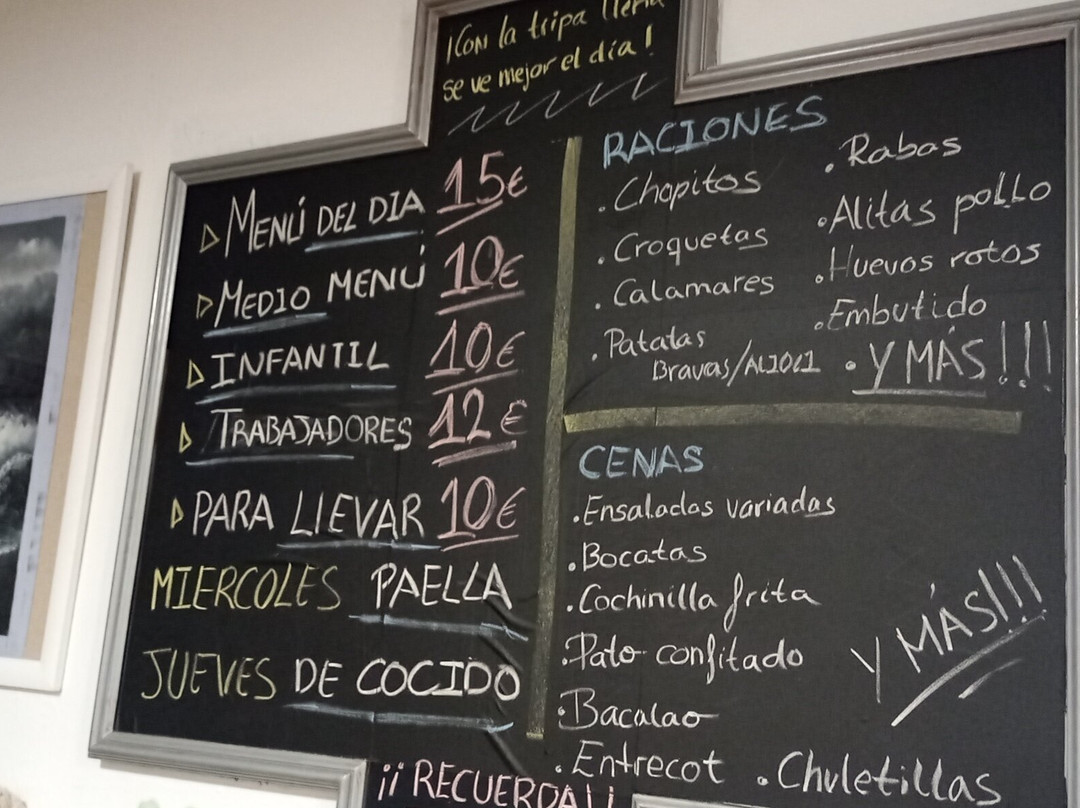 ¡Con la tripa llena
se ve mejor el día!
MENÚ DEL DIA 15€
MEDIO MENÚ 10€
INFANTIL 10€
TRABAJADORES 12€
PARA LLEVAR 10€
MIERCOLES PAELLA
JUEVES DE COCIDO
RACIONES
.Chopitos
.Croquetas
.Calamares
.Patatas
Bravas/ALIOLI
.Rabas
.Alitas poLLo
.Huevos rotos
.Embutido
.Y MÁS!!!
CENAS
.Ensaladas variadas
.Bocatas
.Cochinilla frita
.Pato confitado
.Bacalao
.Entrecot .Chuletillas
Y MÁS!!!
¡¡RECUERDA!!